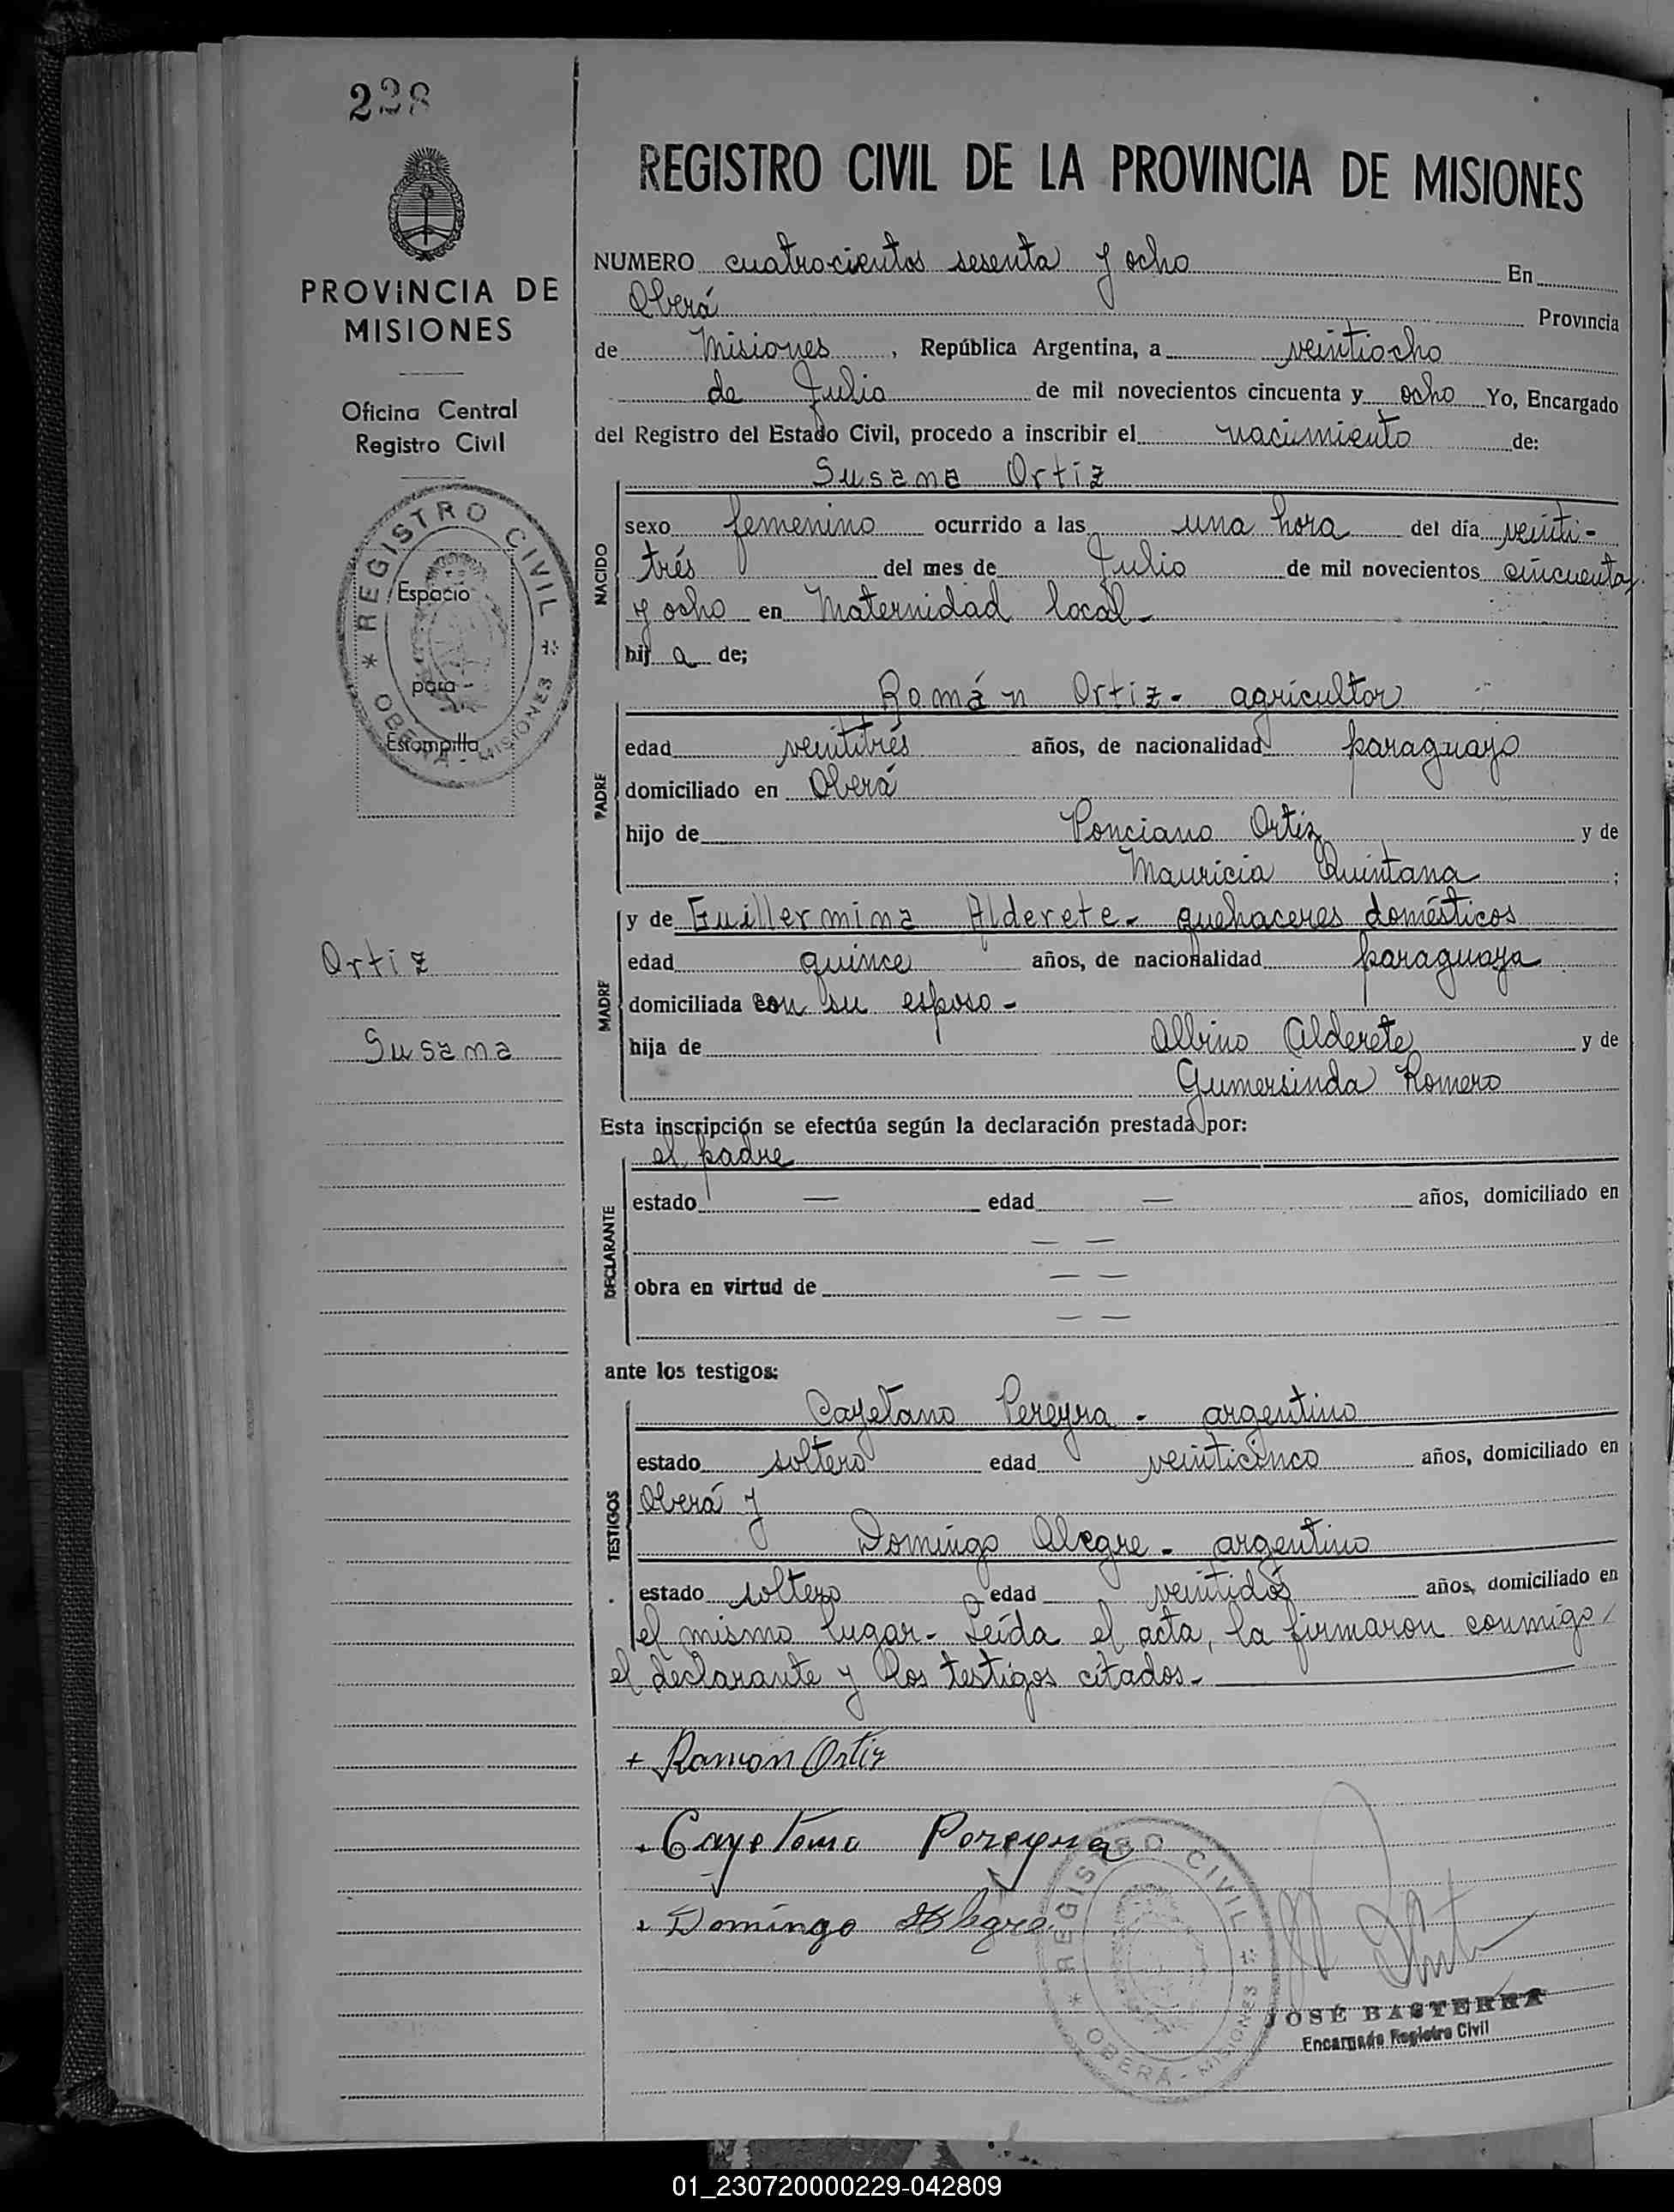 228
REGISTRO CIVIL DE LA PROVINCIA DE MISIONES
PROVINCIA DE
MISIONES
Oficina Central
Registro Civil
REGISTRO CIVIL
OBERÁ - MISIONES
Espacio
para
Estampilla
Ortiz
Susana
NUMERO cuatrocientos sesenta y ocho En
Oberá Provincia
de Misiones, República Argentina, a veintiocho
de Julio de mil novecientos cincuenta y ocho Yo, Encargado
del Registro del Estado Civil, procedo a inscribir el nacimiento de:
Susana Ortiz
NACIDO
sexo femenino ocurrido a las una hora del día veinti-
trés del mes de Julio de mil novecientos cincuenta
y ocho en Maternidad local-
hija de;
Román Ortiz- agricultor
PADRE
edad veintitrés años, de nacionalidad paraguayo
domiciliado en Oberá
hijo de Ponciano Ortiz y de
Mauricia Quintana;
MADRE
y de Guillermina Alderete- quehaceres domésticos
edad quince años, de nacionalidad paraguaya
domiciliada con su esposo-
hija de Albino Alderete y de
Gumersinda Romero
Esta inscripción se efectúa según la declaración prestada por:
el padre
DECLARANTE
estado — edad — años, domiciliado en
— —
obra en virtud de — —
— —
ante los testigos:
Cayetano Pereyra - argentino
TESTIGOS
estado soltero edad veinticinco años, domiciliado en
Oberá y
Domingo Alegre - argentino
estado soltero edad veintidós años, domiciliado en
el mismo lugar- Leída el acta, la firmaron conmigo/
el declarante y los testigos citados-
+ Ramon Ortiz
Cayetano Pereyra
Domingo Alegre
REGISTRO CIVIL
OBERÁ - MISIONES
JOSÉ BASTERRA
Encargado Registro Civil
01_230720000229-042809